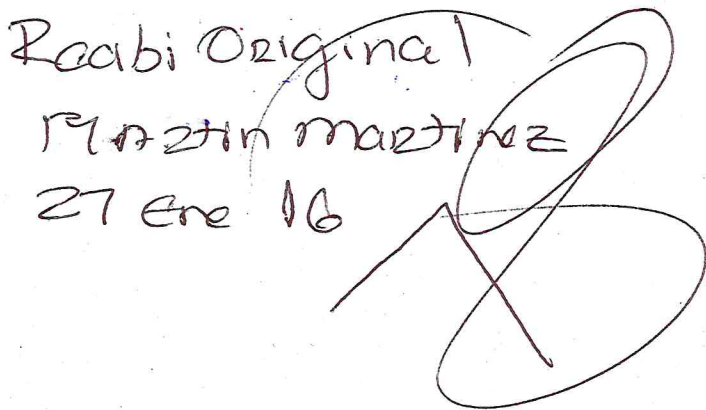 Recibi Original
Martin martinez
27 Ene 16